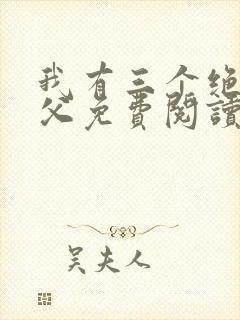 我有三个绝
父免费阅读
吴夫人